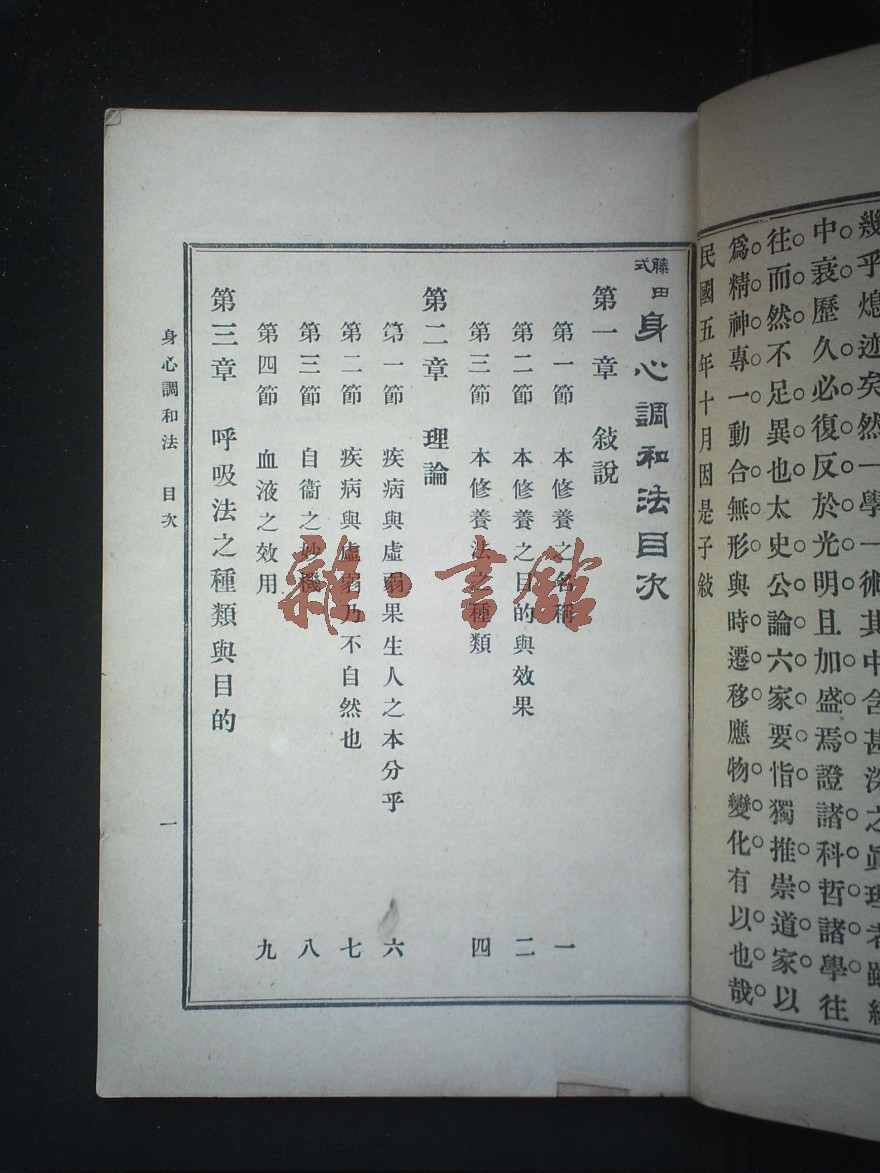 幾乎熄迹矣然一學一術其中含甚深之眞理者雖經
中衰歷久必復反於光明且加盛焉證諸科哲諸學往
往而然不足異也太史公論六家要恉獨推崇道家以
爲精神專一動合無形與時遷移應物變化有以也哉
民國五年十月因是子敍
藤田式身心調和法目次
第一章 敍說
第一節 本修養之名稱 一
第二節 本修養之目的與效果 二
第三節 本修養法之種類 四
第二章 理論
第一節 疾病與虛弱果生人之本分乎 六
第二節 疾病與虛弱乃不自然也 七
第三節 自衞之妙機 八
第四節 血液之效用 九
第三章 呼吸法之種類與目的
身心調和法 目次 一
雜·書館